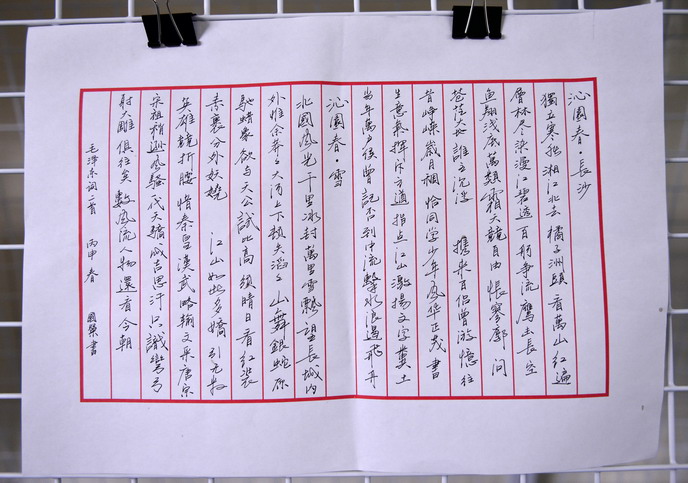 沁園春·長沙
獨立寒秋湘江北去橘子洲頭看萬山红遍
層林尽染漫江碧透百舸争流鹰击長空
鱼翔浅底萬類霜天競自由悵寥廓问
苍茫大地誰主沉浮 携来百侣曾游憶往
昔峥嵘歲月稠恰同学少年風华正茂書
生意氣挥斥方遒指点江山激揚文字粪土
当年萬户侯曾記否到中流擊水浪遏飛舟
沁園春·雪
北國風光千里冰封萬里雪飘望長城内
外惟余莽々大河上下顿失滔々山舞銀蛇原
馳蜡象欲与天公試比高須晴日看红装
素裹分外妖娆 江山如此多嬌引无数
英雄競折腰惜秦皇漢武略輸文采唐宗
宋祖稍逊風騷一代天驕成吉思汗只識彎弓
射大雕俱往矣數風流人物還看今朝
毛澤东词二首 丙申春 國榮書